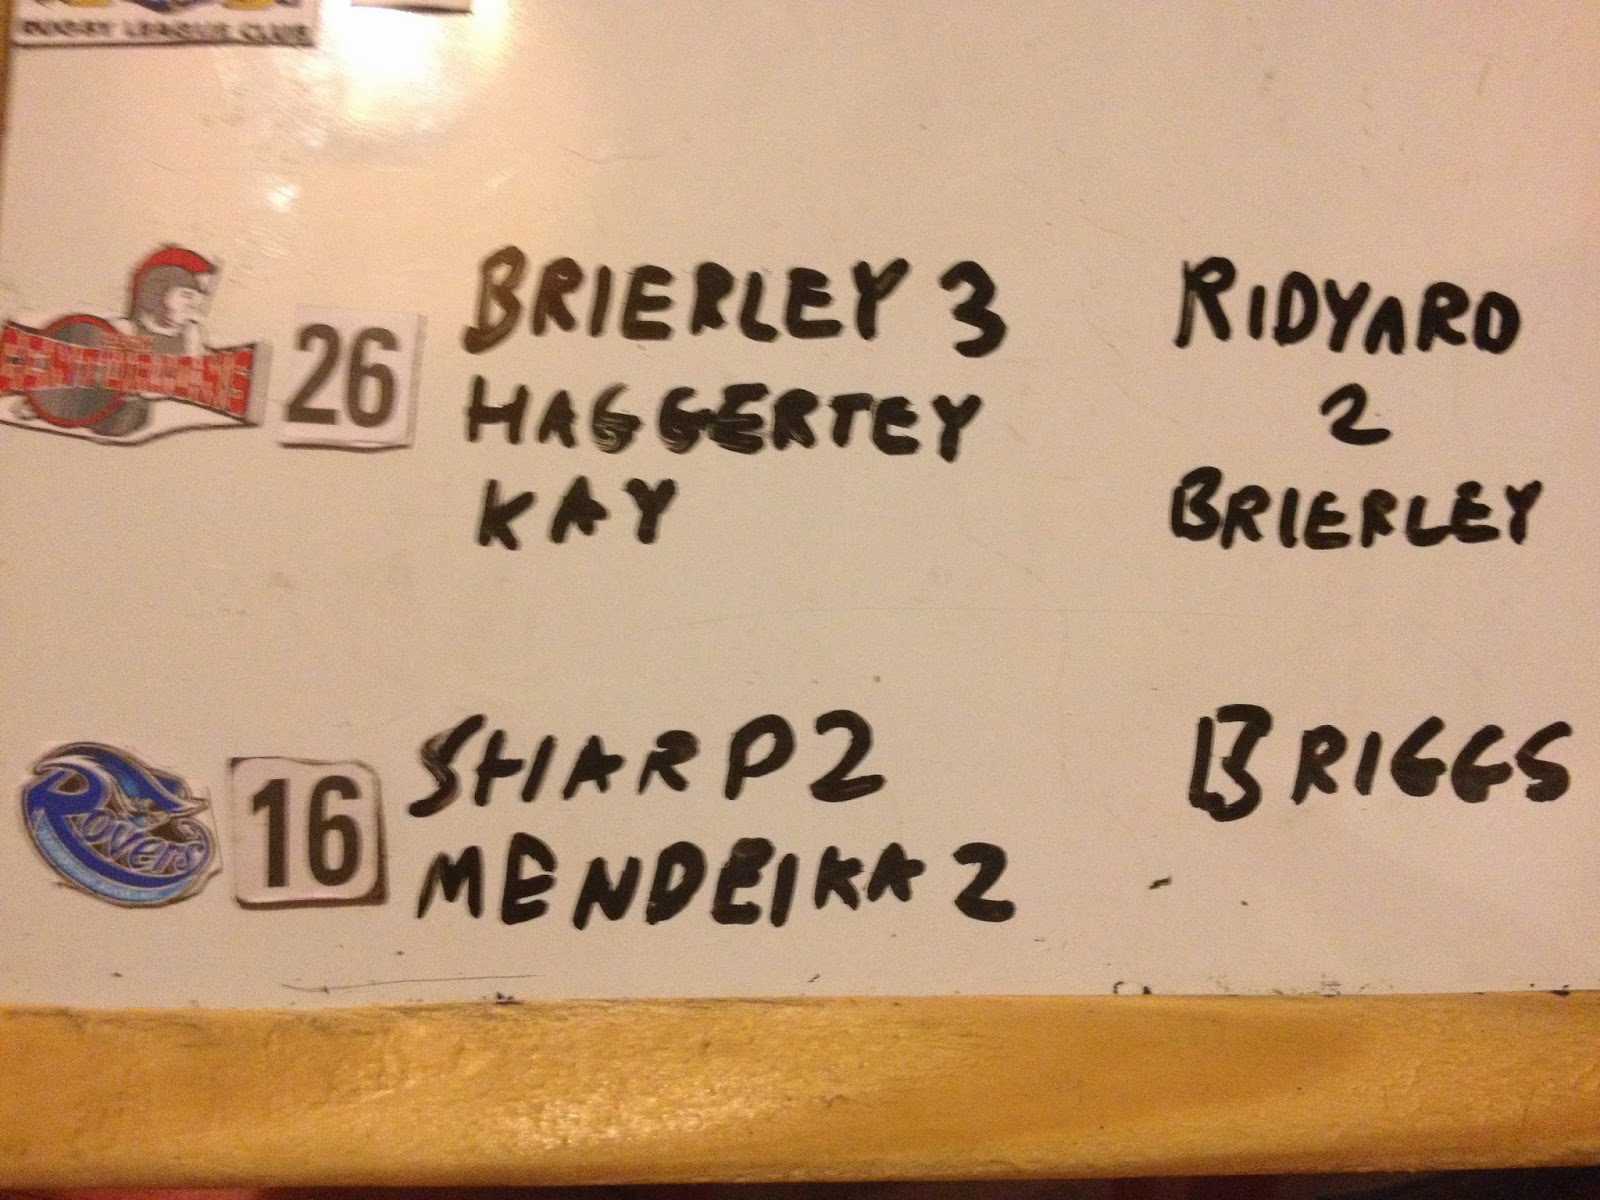 RUGBY LEAGUE CLUB
26 BRIERLEY 3 RIDYARD
HAGGERTEY 2
KAY BRIERLEY
Rovers 16 SHARP 2 BRIGGS
MENDEIKA 2